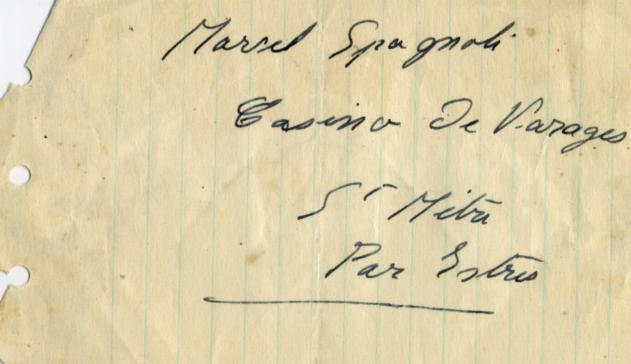 Marcel Spagnoli
Casino De Varages
St Mitre
Par Estres